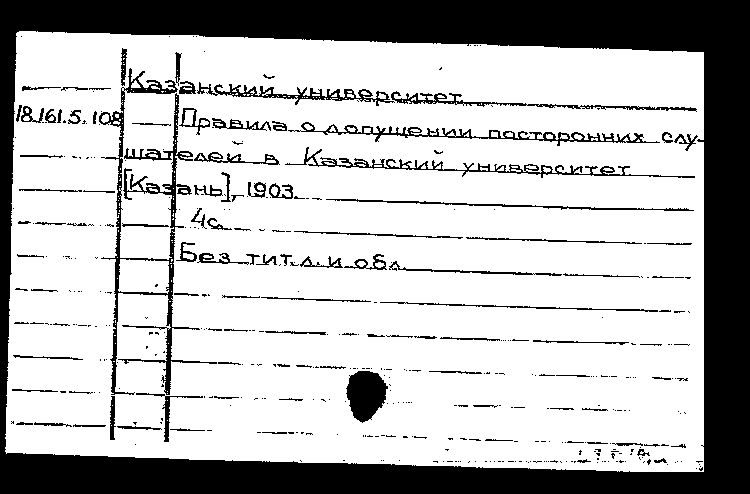 Казанский университет
18.161.5.108 Правила о допущении посторонних слу-
шателей в Казанский университет
[Казань], 1903.
4с.
Без тит.л. и обл.